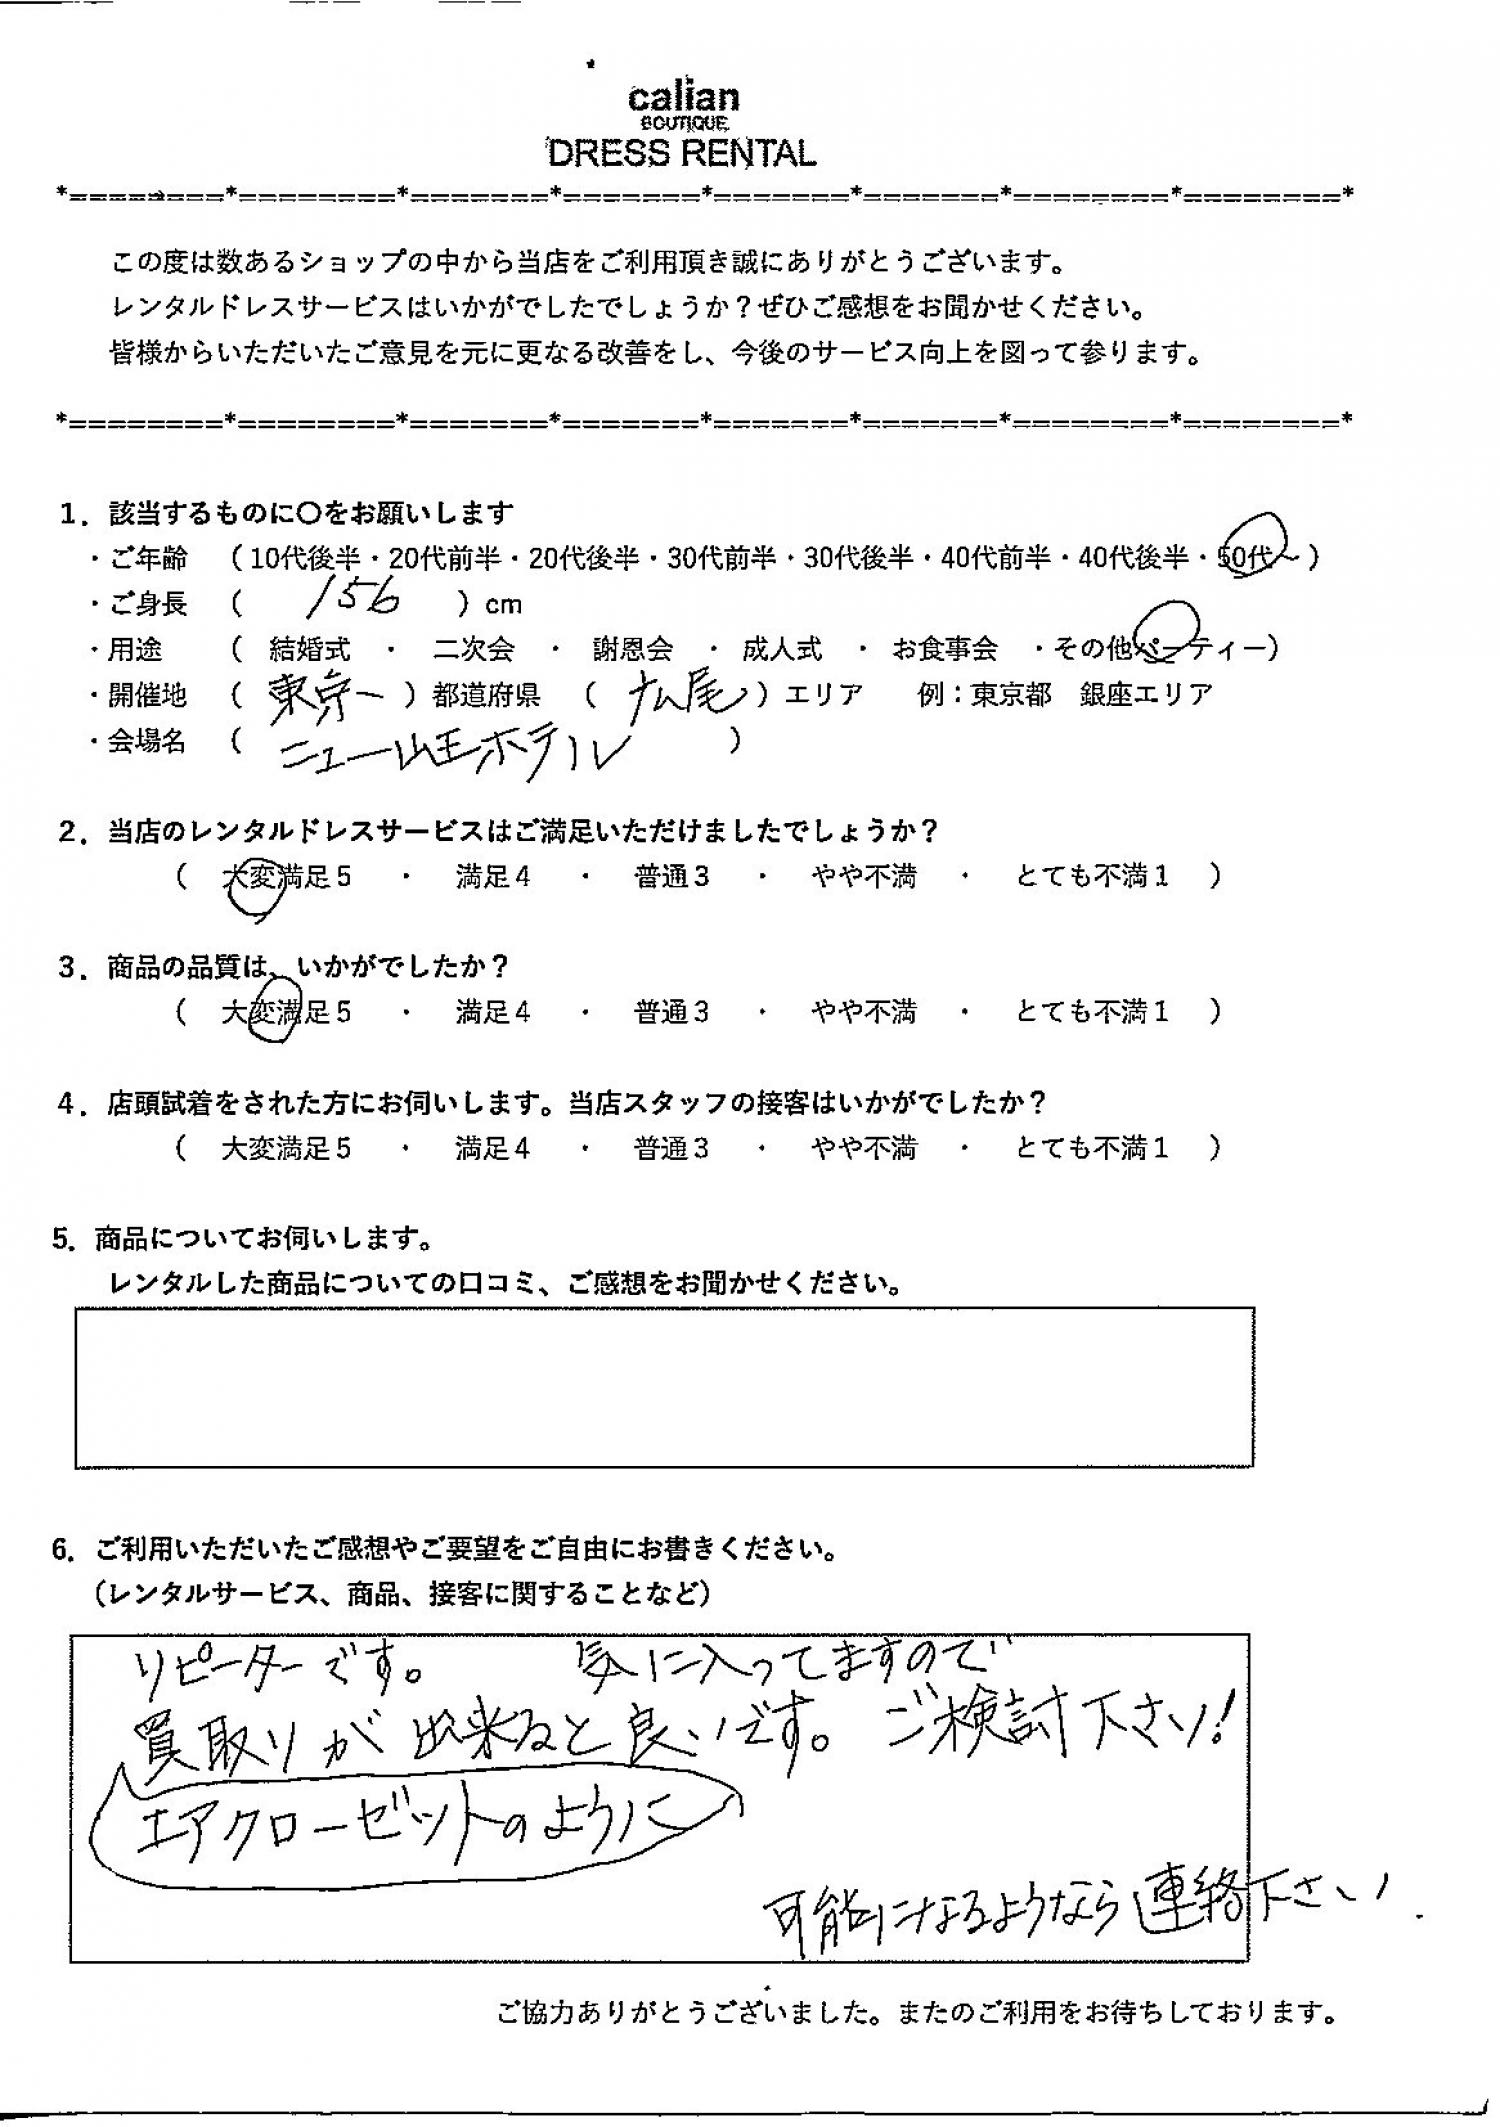 calian
BOUTIQUE
DRESS RENTAL
*========*========*=======*=======*=======*=======*========*========*
この度は数あるショップの中から当店をご利用頂き誠にありがとうございます。
レンタルドレスサービスはいかがでしたでしょうか？ぜひご感想をお聞かせください。
皆様からいただいたご意見を元に更なる改善をし、今後のサービス向上を図って参ります。
*========*========*=======*=======*=======*=======*========*========*
1．該当するものに〇をお願いします
・ご年齢　（10代後半・20代前半・20代後半・30代前半・30代後半・40代前半・40代後半・50代～）
・ご身長　（　156　）cm
・用途　（　結婚式　・　二次会　・　謝恩会　・　成人式　・　お食事会　・その他パーティー）
・開催地　（　東京　）都道府県　（　　）エリア　例：東京都　銀座エリア
・会場名　（　ニュー山王ホテル　）
2．当店のレンタルドレスサービスはご満足いただけましたでしょうか？
（　大変満足５　・　満足４　・　普通３　・　やや不満　・　とても不満１　）
3．商品の品質は、いかがでしたか？
（　大変満足５　・　満足４　・　普通３　・　やや不満　・　とても不満１　）
4．店頭試着をされた方にお伺いします。当店スタッフの接客はいかがでしたか？
（　大変満足５　・　満足４　・　普通３　・　やや不満　・　とても不満１　）
5．商品についてお伺いします。
レンタルした商品についての口コミ、ご感想をお聞かせください。
6．ご利用いただいたご感想やご要望をご自由にお書きください。
（レンタルサービス、商品、接客に関することなど）
リピーターです。　気に入ってますので
買取りが出来ると良いです。ご検討下さい！
エアクローゼットのように
可能になるようなら連絡下さい．
ご協力ありがとうございました。またのご利用をお待ちしております。